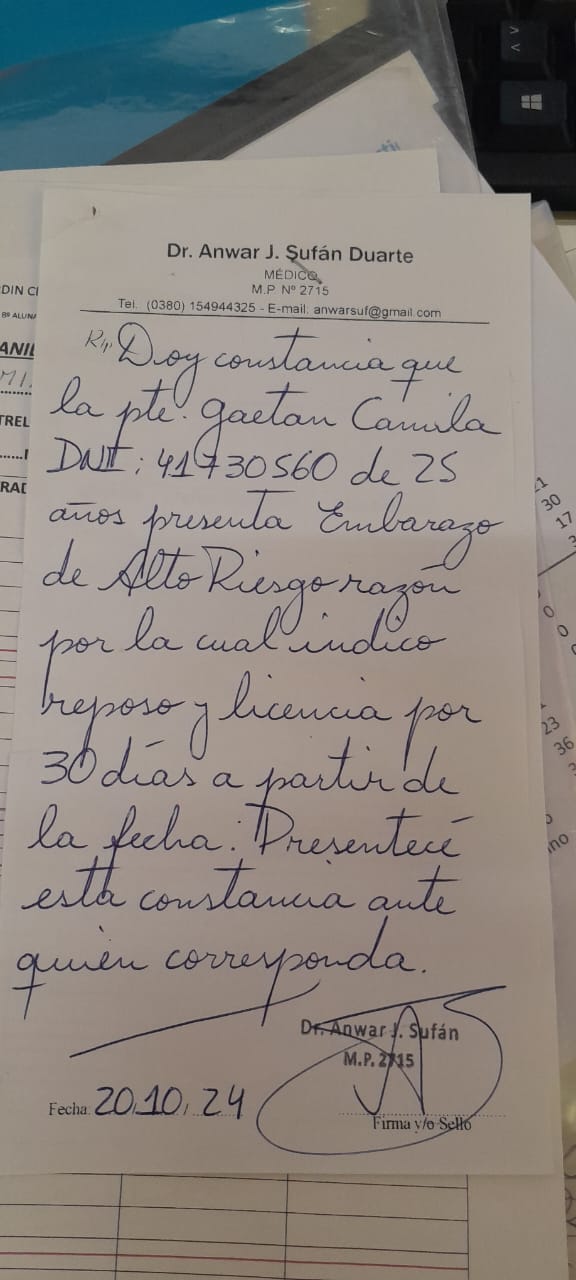 Dr. Anwar J. Sufán Duarte
MÉDICO
M.P. Nº 2715
Tel. (0380) 154944325 - E-mail: anwarsuf@gmail.com
R/p. Doy constancia que
la pte. Gaetan Camila
DNI: 41730560 de 25
años presenta Embarazo
de Alto Riesgo razón
por la cual indico
reposo y licencia por
30 días a partir de
la fecha. Presentecé
esta constancia ante
quien corresponda.
Dr. Anwar J. Sufán
M.P. 2715
Fecha: 20/10/24
Firma y/o Sello
DIN
Bº ALUNA
ANIL
MI
TREL
RAD
21
30
17
0
0
23
36
no